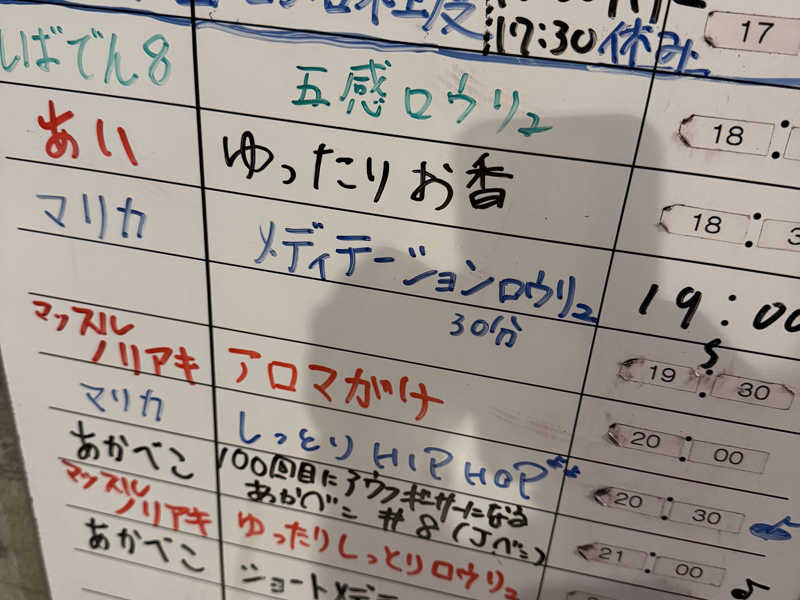 17:30 休み
17
いばでん8 五感ロウリュ 18:
あい ゆったりお香 18:3
マリカ メディテーションロウリュ 19:00
30分
マッスル
ノリアキ アロマがけ 19:30
マリカ しっとりHIPHOP 20:00
あかべこ 100回目にアウフギーサーになる
あかべこ #8 (Jベこ) 20:30
マッスル
ノリアキ ゆったりしっとりロウリュ 21:00
あかべこ ショートメデ